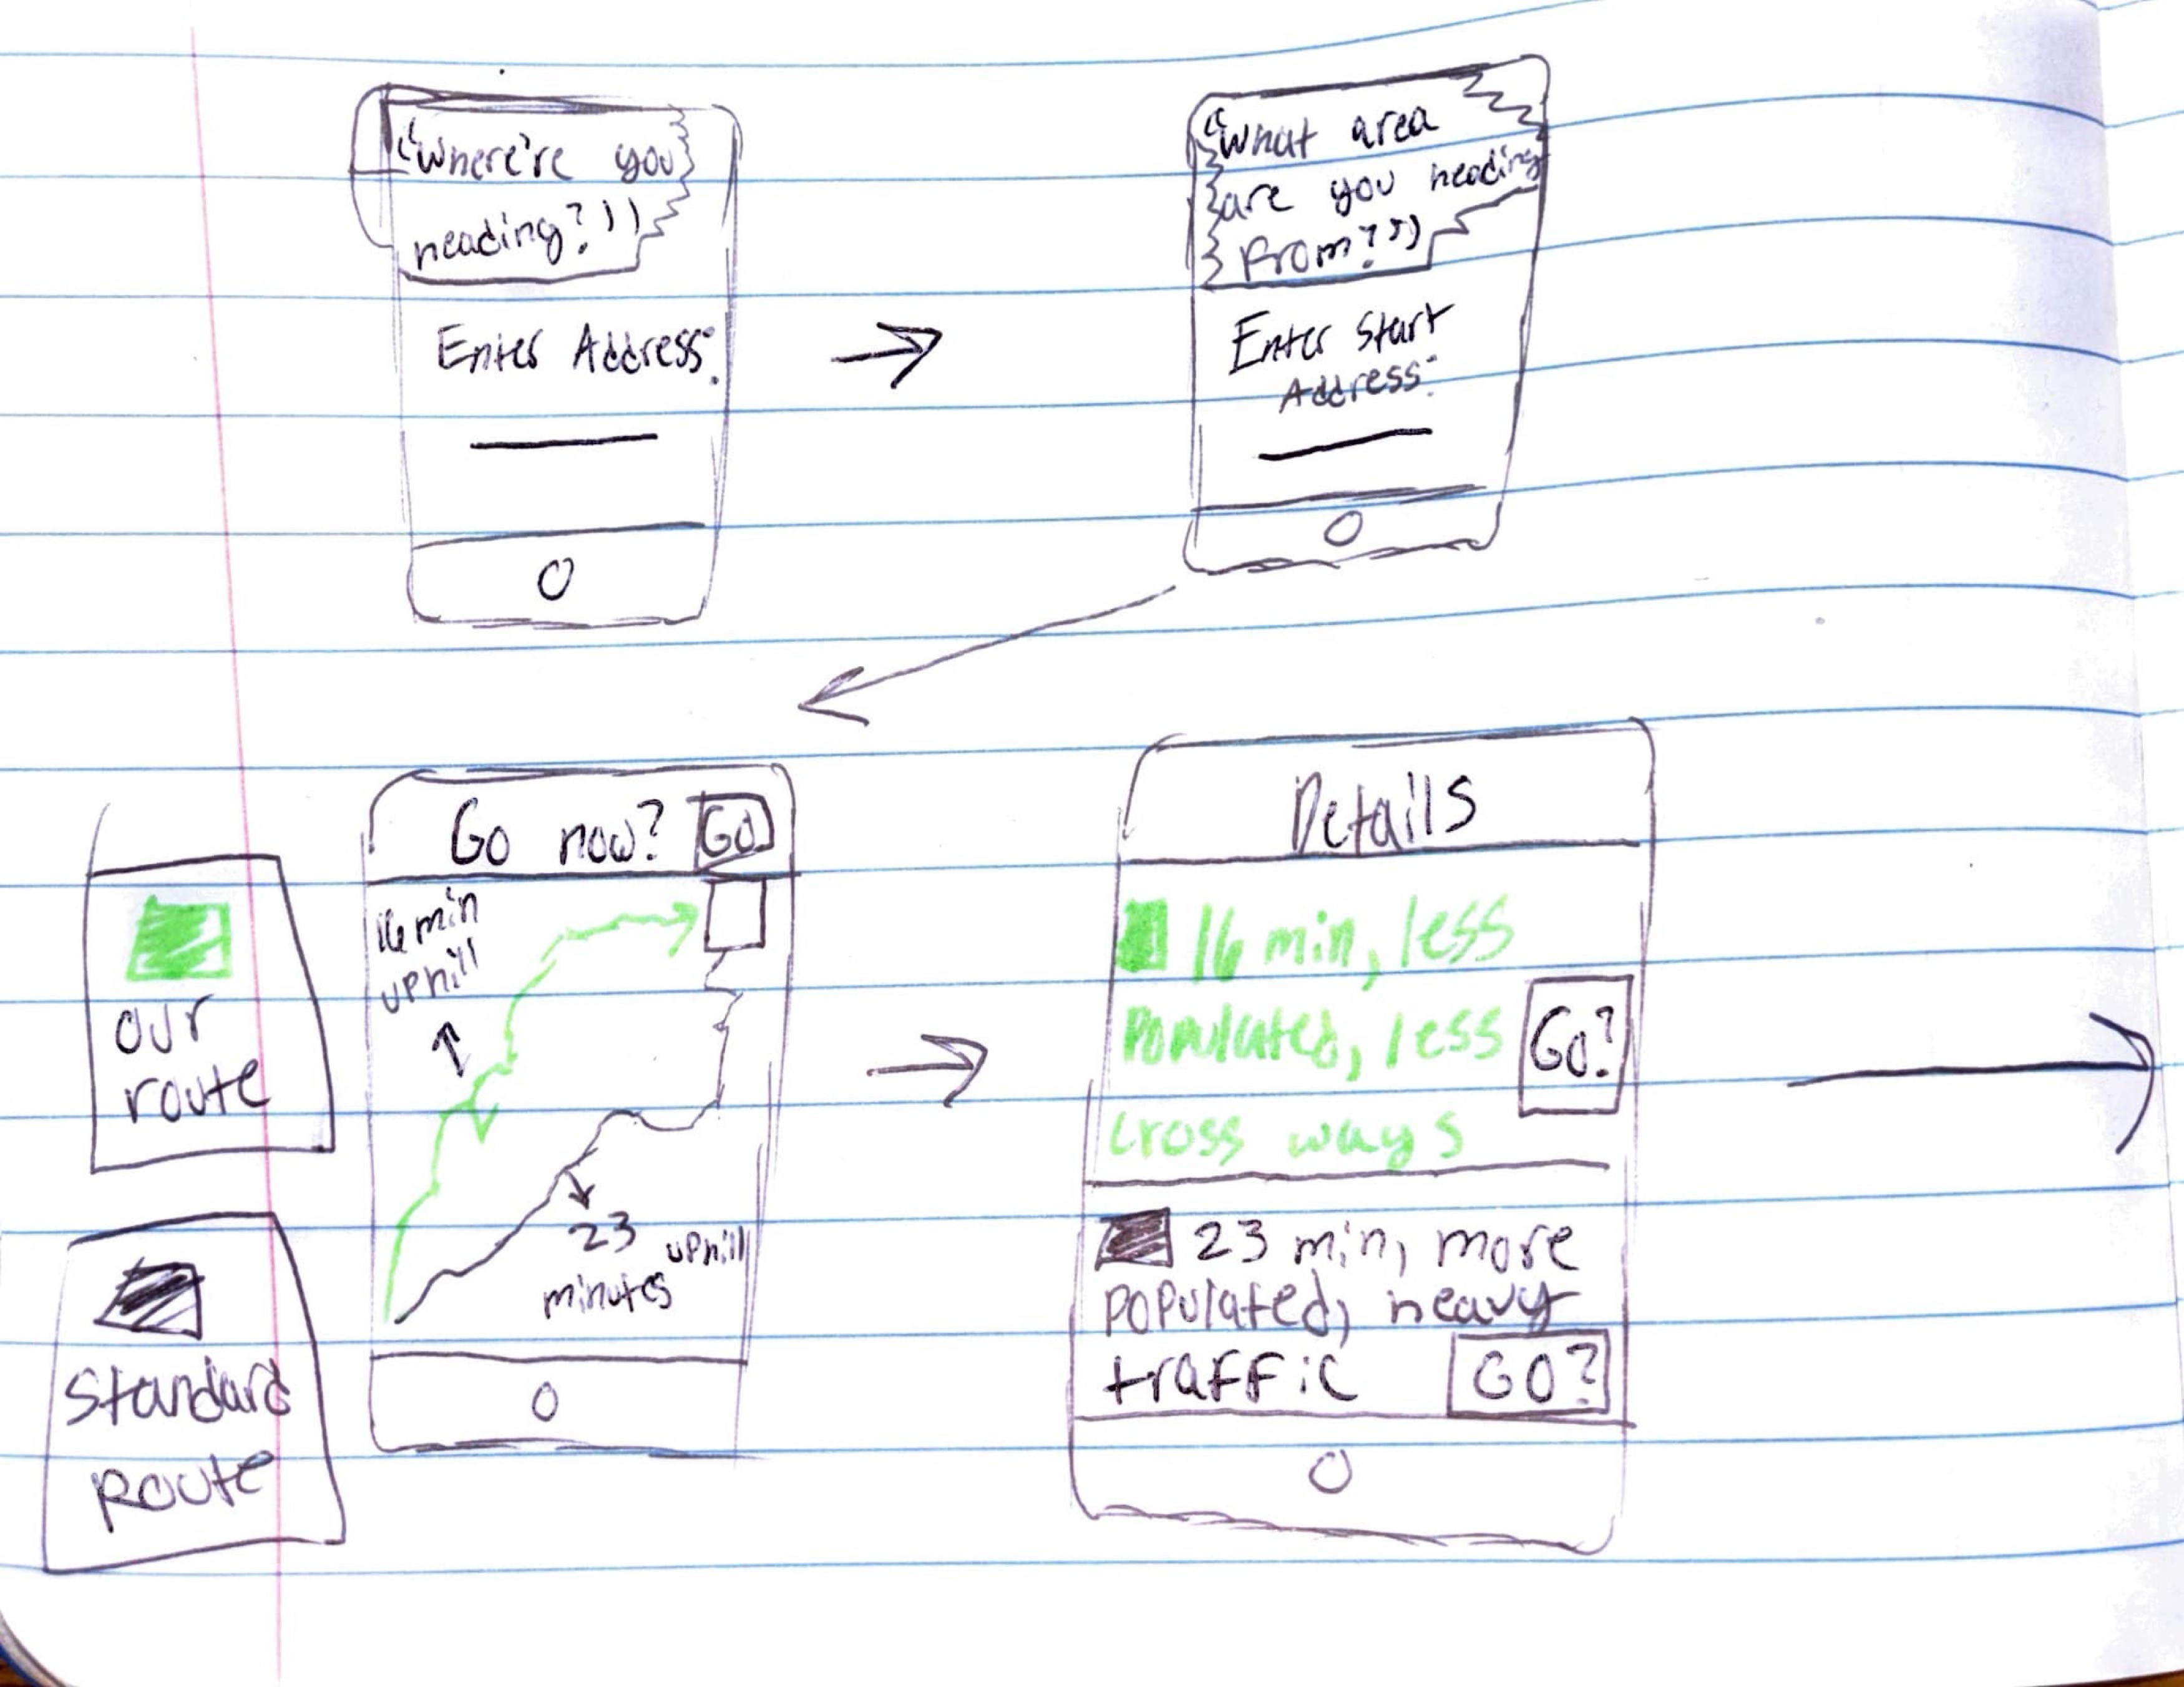 "Where're you
heading?"
Enter Address:
"What area
are you heading
from?"
Enter Start
Address:
Our
route
Standard
Route
Go now? GO
16 min
uphill
23 uphill
minutes
Details
16 min, less
Populated, less
cross ways
Go?
23 min, more
populated, heavy
traffic GO?